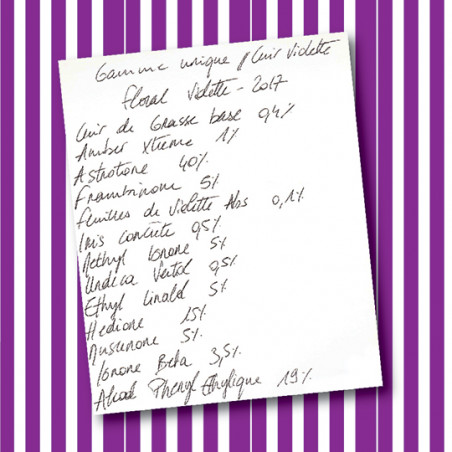 Gamme unique // Cuir Violette
Floral Violette - 2017
Cuir de Grasse base 0,4%
Amber Xtreme 1%
Astrotone 40%
Frambinone 5%
Feuilles de Violette Abs 0,1%
Iris Concrète 0,5%
Methyl Ionone 5%
Undeca Vertol 0,5%
Ethyl Linalol 5%
Hedione 15%
Muscenone 5%
Ionone Beta 3,5%
Alcool Phenyl Ethylique 19%